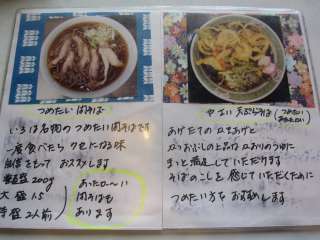 つめたい肉そば
いろは名物のつめたい肉そばです
一度食べたら クセになる味
自信をもって おススメします
普通盛 200g
大盛 1.5
特盛 2人前
あったか〜い
肉そばも
あります
やさい 天ぷらそば (つめたい
あたたかい)
あげたての天ぷらあげと
天ぷらぶしの上品なつゆが
きっと満足していただけます
そばのこしを感じていただくために
つめたい方をおすすめします